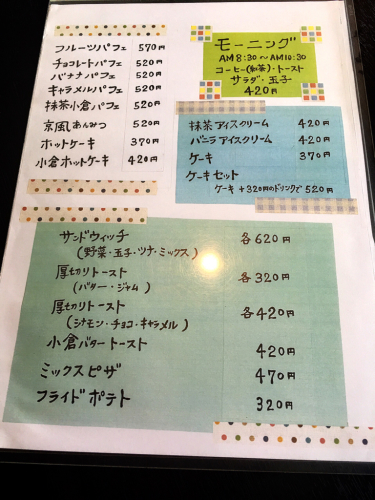 フルーツパフェ 570円
チョコレートパフェ 520円
バナナパフェ 520円
キャラメルパフェ 520円
抹茶小倉パフェ 520円
京風あんみつ 520円
ホットケーキ 370円
小倉ホットケーキ 420円
モーニング
AM8:30〜AM10:30
コーヒー(紅茶)・トースト
サラダ・玉子
420円
抹茶アイスクリーム 420円
バニラアイスクリーム 420円
ケーキ 370円
ケーキセット
ケーキ+320円のドリンクで520円
サンドウィッチ 各620円
(野菜・玉子・ツナ・ミックス)
厚切りトースト 各320円
(バター・ジャム)
厚切りトースト 各420円
(シナモン・チョコ・キャラメル)
小倉バタートースト 420円
ミックスピザ 470円
フライドポテト 320円